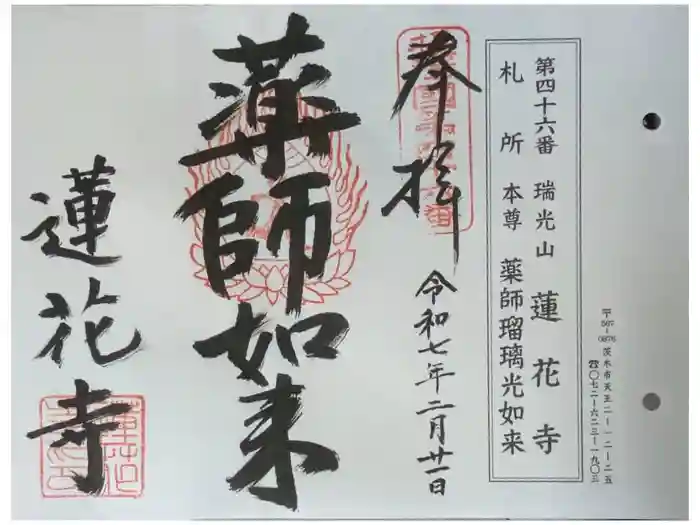 〒567-0876 茨木市天王二-一二-二五
☎〇七二-六二三-一九〇三
第四十六番 瑞光山 蓮花寺
札所 本尊 薬師瑠璃光如来
奉拝
令和七年二月廿一日
薬師如来
蓮花寺